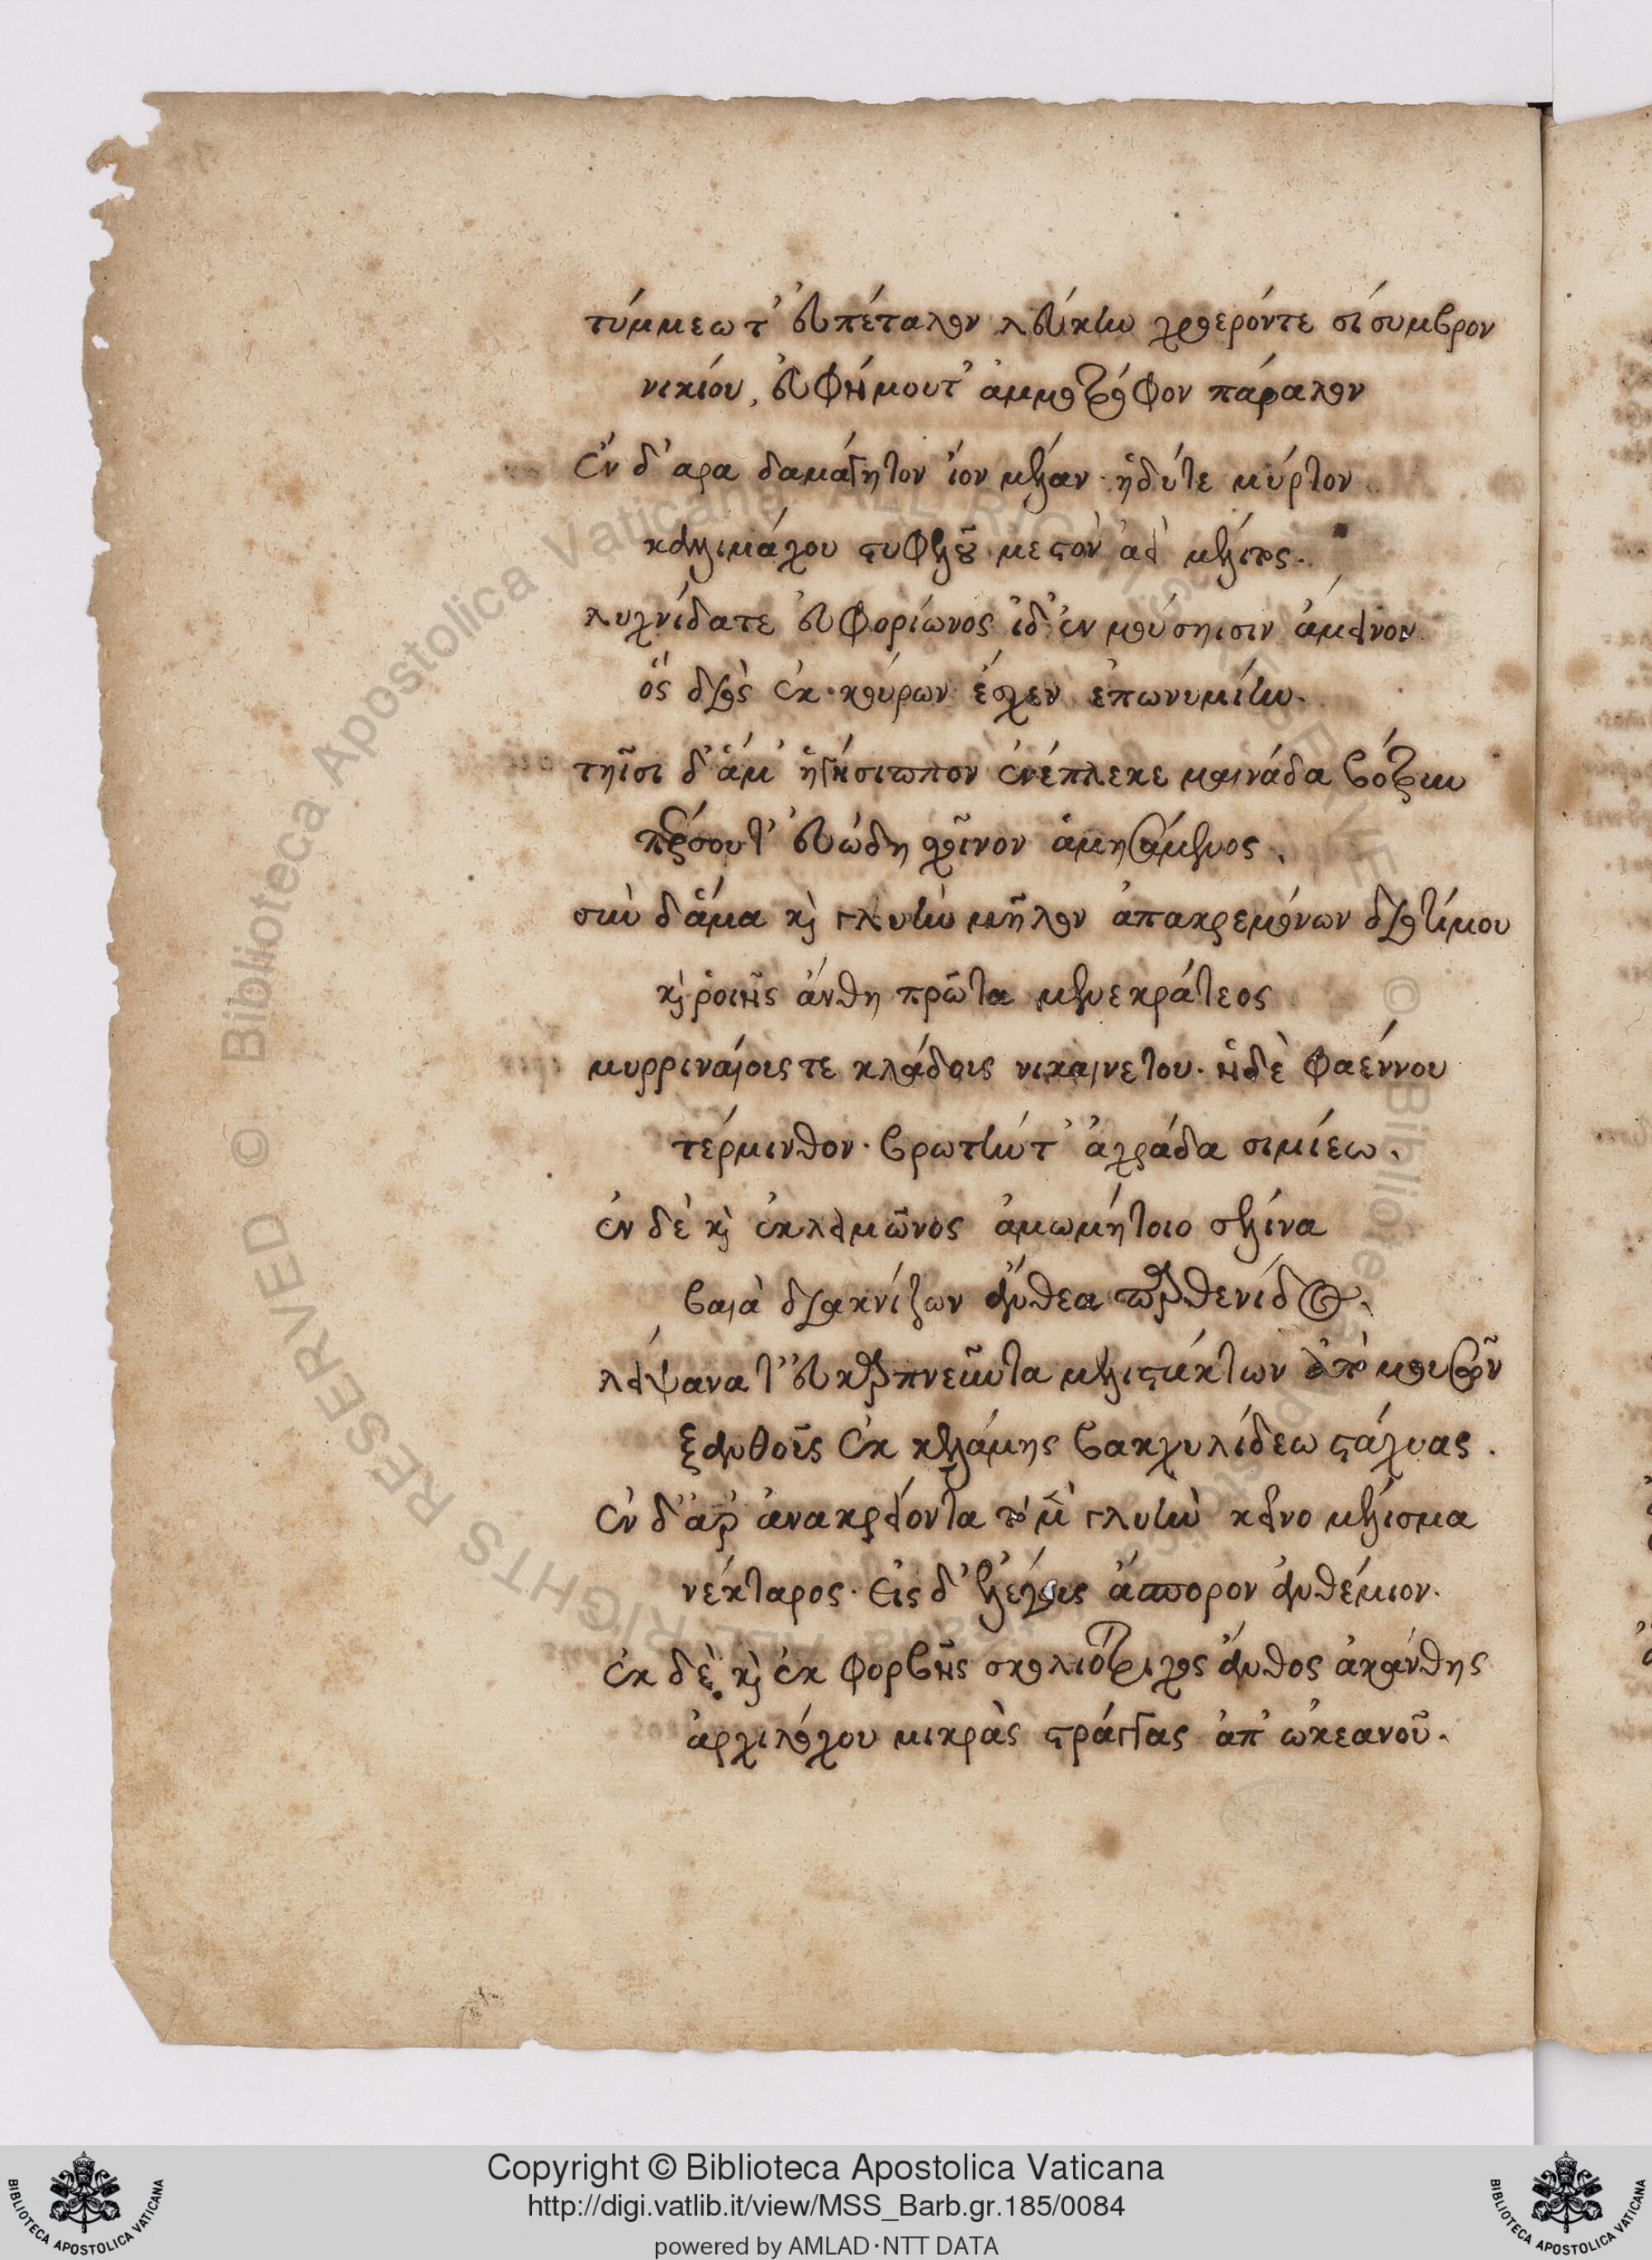 τύμμεωτ' εὐπέταλον λεύκην χλοερόντε σίσυμβρον
νικίου, εὐφήμουτ' ἀμμοτρόφον πάραλον
ἐν δ' αρα δαμάγητον ἴον μέλαν· ἡδύτε μύρτον
καλλιμάχου στυφελοῦ μεστὸν ἀεὶ μέλιτος.
λυχνίδατε εὐφορίωνος ἰδ' ἐν μούσηισιν ἄμεινον
ὃς διὸς ἐκ κούρων ἔσχεν ἐπωνυμίην.
τηῖσι δ' ἅμ' ἡγήσιππον ἐνέπλεκε μαινάδα βότρυν
πέρσουτ' εὐώδη σχοῖνον ἀμησάμενος.
σὺν δἅμα καὶ γλυκὺ μῆλον ἀπακρεμόνων διοτίμου
καὶ ῥοιῆς ἄνθη πρῶτα μενεκράτεος
μυρριναίοις τε κλάδοις νικαινετου· ἠδὲ φαέννου
τέρμινθον· βρωτήν τ' ἀχράδα σιμίεω.
ἐν δὲ καὶ ἐκ λειμῶνος ἀμωμήτοιο σέλινα
βαιὰ διακνίζων ἄνθεα παρθενίδος.
λείψανα τ' εὐκαρπνεῦντα μελιστάκτων ἀπὸ μουσῶν
ξανθοὺς ἐκ καλάμης βακχυλίδεω στάχυας.
ἐν δ' ἄρ' ἀνακρείοντα τὸ μὲν γλυκὺ κεῖνο μέλισμα
νέκταρος· εἰς δ' ἐλέγους ἄσπορον ἀνθέμιον.
ἐκ δὲ καὶ ἐκ φορβῆς σκολιότριχος ἄνθος ἀκάνθης
ἀρχιλόχου μικρὰς στράγγας ἀπ' ὠκεανοῦ.
© Biblioteca Apostolica Vaticana ALL RIGHTS RESERVED
Copyright © Biblioteca Apostolica Vaticana
http://digi.vatlib.it/view/MSS_Barb.gr.185/0084
powered by AMLAD·NTT DATA
BIBLIOTECA APOSTOLICA VATICANA
BIBLIOTECA APOSTOLICA VATICANA